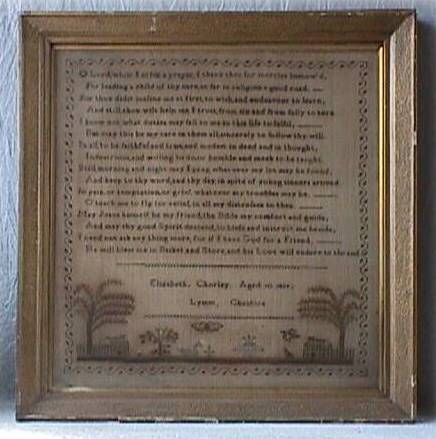 O Lord, when I offer a prayer, I thank thee for mercies bestow'd,
For leading a child of thy care, so far in religion's good road.
For thou didst incline me at first, to wish, and endeavour to learn,
And still thou wilt help me I trust, from sin and from folly to turn
I know not what duties may fall to me in this life to fulfil,
But may this be my care in them all, sincerely to follow thy will.
In all to be faithful and true, and modest in deed and in thought,
Industrious, and willing to do, so humble and meek to be taught.
Still morning and night may I pray, wherever my lot may be found,
And keep to thy word, and thy day, in spite of young sinners around
In pain, or temptation, or grief, whatever my troubles may be.
O teach me to fly for relief, in all my distresses to thee.
May Jesus himself be my friend, the Bible my comfort and guide,
And may thy good Spirit descend, to bless and instruct me beside,
I need not ask any thing more, for if I have God for a Friend,
He will bless me in Basket and Store, and his Love will endure to the end
Elizabeth Chorley Aged 10
Lymm, Cheshire